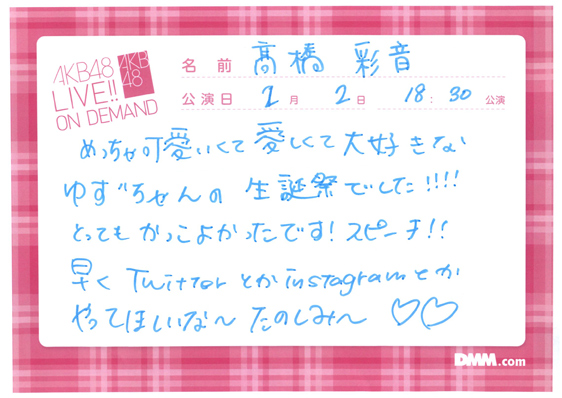 AKB48
LIVE!!
ON DEMAND
AKB
48
名前 髙橋 彩音
公演日 2月 2日 18:30 公演
めっちゃ可愛いくて愛しくて大好きな
ゆず"ちゃんの 生誕祭でした!!!!
とってもかっこよかったです!スピーチ!!
早く Twitterとかinstagramとか
やってほしいな〜 たのしみ〜 ♡♡
DMM.com